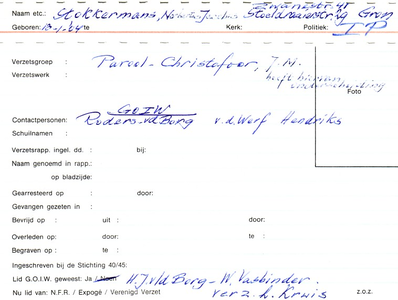 Naam etc.: Stokkermans,
Geboren: te Kerk: Politiek:
Verzetsgroep : Parool - Christofoor, J.M.
Verzetswerk : heeft hiervan
Foto
GOIW
Contactpersonen: Roders-vd Borg v.d. Werf Hendriks
Schuilnaam :
Verzetsrapp. ingel. dd. : bij:
Naam genoemd in rapp.:
op bladzijde:
Gearresteerd op : door:
Gevangen gezeten in :
Bevrijd op : uit : door:
Overleden op: door: te :
Begraven op : te :
Ingeschreven bij de Stichting 40/45:
Lid G.O.I.W. geweest: Ja / Neen H.J. v/d Borg - W. Vasbinder.
Nu lid van: N.F.R. / Expogé / Verenigd Verzet verz. h. Kruis z.o.z.